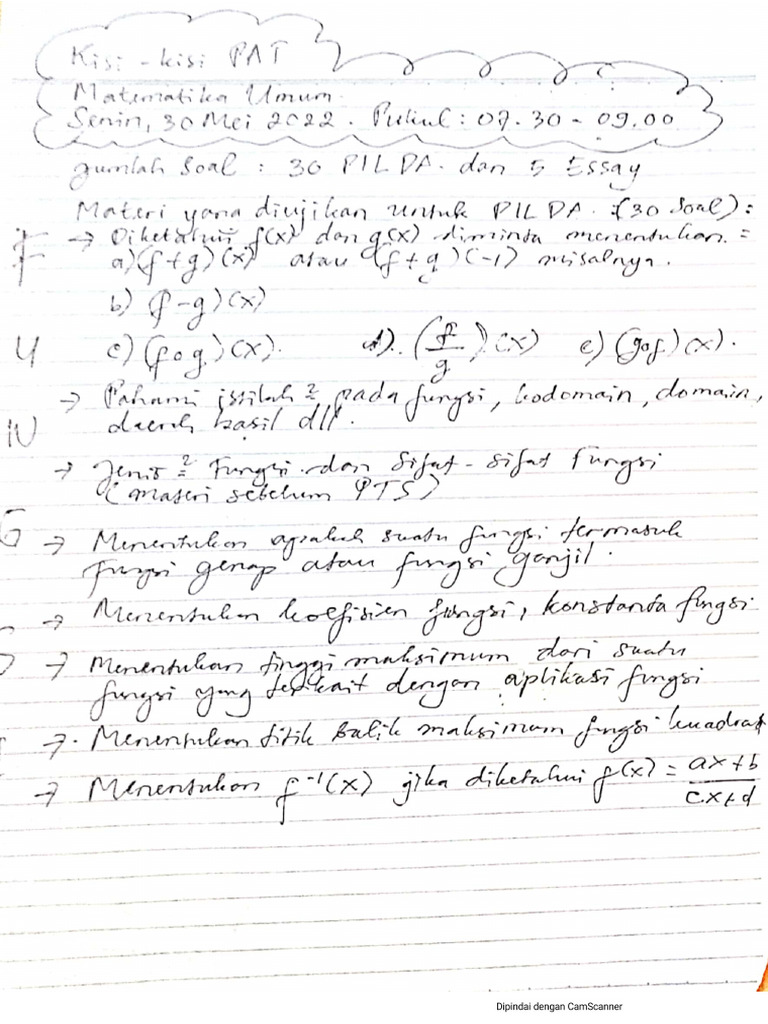 Kisi - kisi PAT
Matematika Umum.
Senin, 30 Mei 2022. Pukul : 07.30 - 09.00
Jumlah Soal : 30 PILDA. dan 5 Essay
Materi yang diujikan untuk PILDA. (30 Soal) :
→ Diketahui f(x) dan g(x) diminta menentukan =
a) (f+g)(x) atau (f+g)(-1) misalnya.
b) (f-g)(x)
c) (fog)(x). d). (f/g)(x) e) (gof)(x).
→ Pahami istilah² pada fungsi, kodomain, domain,
daerah hasil dll.
→ Jenis² Fungsi dan Sifat-sifat Fungsi
(Materi sebelum PTS)
→ Menentukan apakah suatu fungsi termasuk
Fungsi genap atau fungsi ganjil.
→ Menentukan koefisien fungsi, konstanta fungsi
→ Menentukan tinggi maksimum dari suatu
fungsi yang terkait dengan aplikasi fungsi
→ Menentukan titik balik maksimum fungsi kuadrat
→ Menentukan f⁻¹(x) jika diketahui f(x) = ax+b / cx+d
Dipindai dengan CamScanner